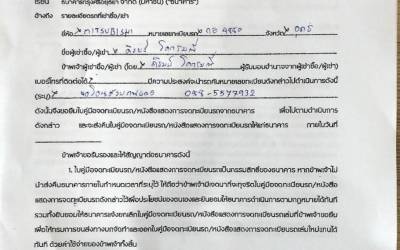 เรียน ธนาคารกรุงศรีอยุธยา จำกัด (มหาชน) ("ธนาคาร")
อ้างถึง รายละเอียดรถที่เช่าซื้อ/เช่า
ยี่ห้อ MITSUBISHI หมายเลขทะเบียนรถ กจ 4960 จังหวัด
ชื่อผู้เช่าซื้อ/ผู้เช่า
ข้าพเจ้าผู้เช่าซื้อ/ผู้เช่า (โดย ผู้รับมอบอำนาจจากผู้เช่าซื้อ/ผู้เช่า)
เบอร์โทรที่ติดต่อได้ มีความประสงค์จะนำรถคันหมายเลขทะเบียนดังกล่าวไปดำเนินการดังนี้
(ระบุ) 088-5577932
ดังนั้นจึงขอยืมใบคู่มือจดทะเบียนรถ/หนังสือแสดงการจดทะเบียนรถจากธนาคาร เพื่อไปตามดำเนินการ
ดังกล่าว และจะส่งคืนใบคู่มือจดทะเบียนรถ/หนังสือแสดงการจดทะเบียนรถให้แก่ธนาคาร ภายในวันที่
ข้าพเจ้าขอรับรองและให้สัญญาต่อธนาคารดังนี้
1. ใบคู่มือจดทะเบียนรถ/หนังสือแสดงการจดทะเบียนรถเป็นกรรมสิทธิ์ของธนาคาร หากข้าพเจ้าไม่
นำส่งคืนธนาคารภายในกำหนดเวลาที่ระบุไว้ ให้ถือว่าข้าพเจ้ามีเจตนาที่จะทุจริตใบคู่มือจดทะเบียนรถ/หนังสือ
แสดงการจดทะเบียนรถดังกล่าวไว้เพื่อประโยชน์ของตนเองและยินยอมให้ธนาคารดำเนินการตามกฎหมายได้ทันที
รวมทั้งยินยอมให้ธนาคารแจ้งยกเลิกใบคู่มือจดทะเบียนรถ/หนังสือแสดงการจดทะเบียนรถเล่มที่ข้าพเจ้าขอยืม
เพื่อให้กรมการขนส่งทางบกจัดทำและออกใบคู่มือจดทะเบียนรถ/หนังสือแสดงการจดทะเบียนรถเล่มใหม่แทนได้
ทันที ด้วยค่าใช้จ่ายของข้าพเจ้าทั้งสิ้น